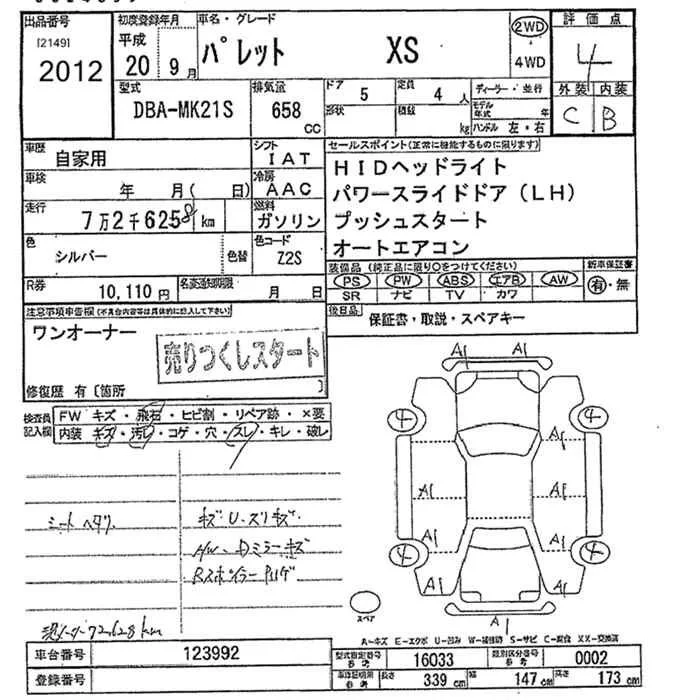 出品番号
[2149]
2012
初度登録年月
平成
20 9月
車名・グレード
パレット XS
2WD
4WD
評価点
4
外装 内装
C B
型式
DBA-MK21S
排気量
658 CC
ドア
5
定員
4 人
形状
積載
kg
ディーラー・並行
モデル年式 年
ハンドル 左・右
車歴
自家用
シフト
IAT
車検
年 月( 日)
冷房
AAC
走行
7万2千6258 km
燃料
ガソリン
色
シルバー
色替
色コード
Z2S
R券
10,110円
名変通知期限
月 日
セールスポイント(正常に機能するものに限ります)
HIDヘッドライト
パワースライドドア(LH)
プッシュスタート
オートエアコン
装備品(純正品に限り○をつけてください)
PS PW ABS エアB AW
SR ナビ TV カワ
新車保証書
有・無
後日品
保証書・取説・スペアキー
注意事項申告欄(不具合内容等は具体的に記入して下さい)
ワンオーナー
売りつくしスタート
修復歴 有〔箇所 〕
検査員記入欄
FW キズ・飛石・ヒビ割・リペア跡・×要
内装 キズ・汚レ・コゲ・穴・スレ・キレ・破レ
シートヘタリ
キズU、スリキズ
AW、Dミラーキズ
Rスポイラー
72,628 km
A1 A1
4 4
A1
A1 A1
A1 A1
4 4
A1 A1
A1
スペア
A-キズ E-エクボ U-凹み W-補修跡 S-サビ C-腐食 XX-交換済
車台番号
123992
登録番号
型式指定番号 参考
16033
類別区分番号 参考
0002
車体証明用 参考
長さ 339 cm
幅 147 cm
高さ 173 cm